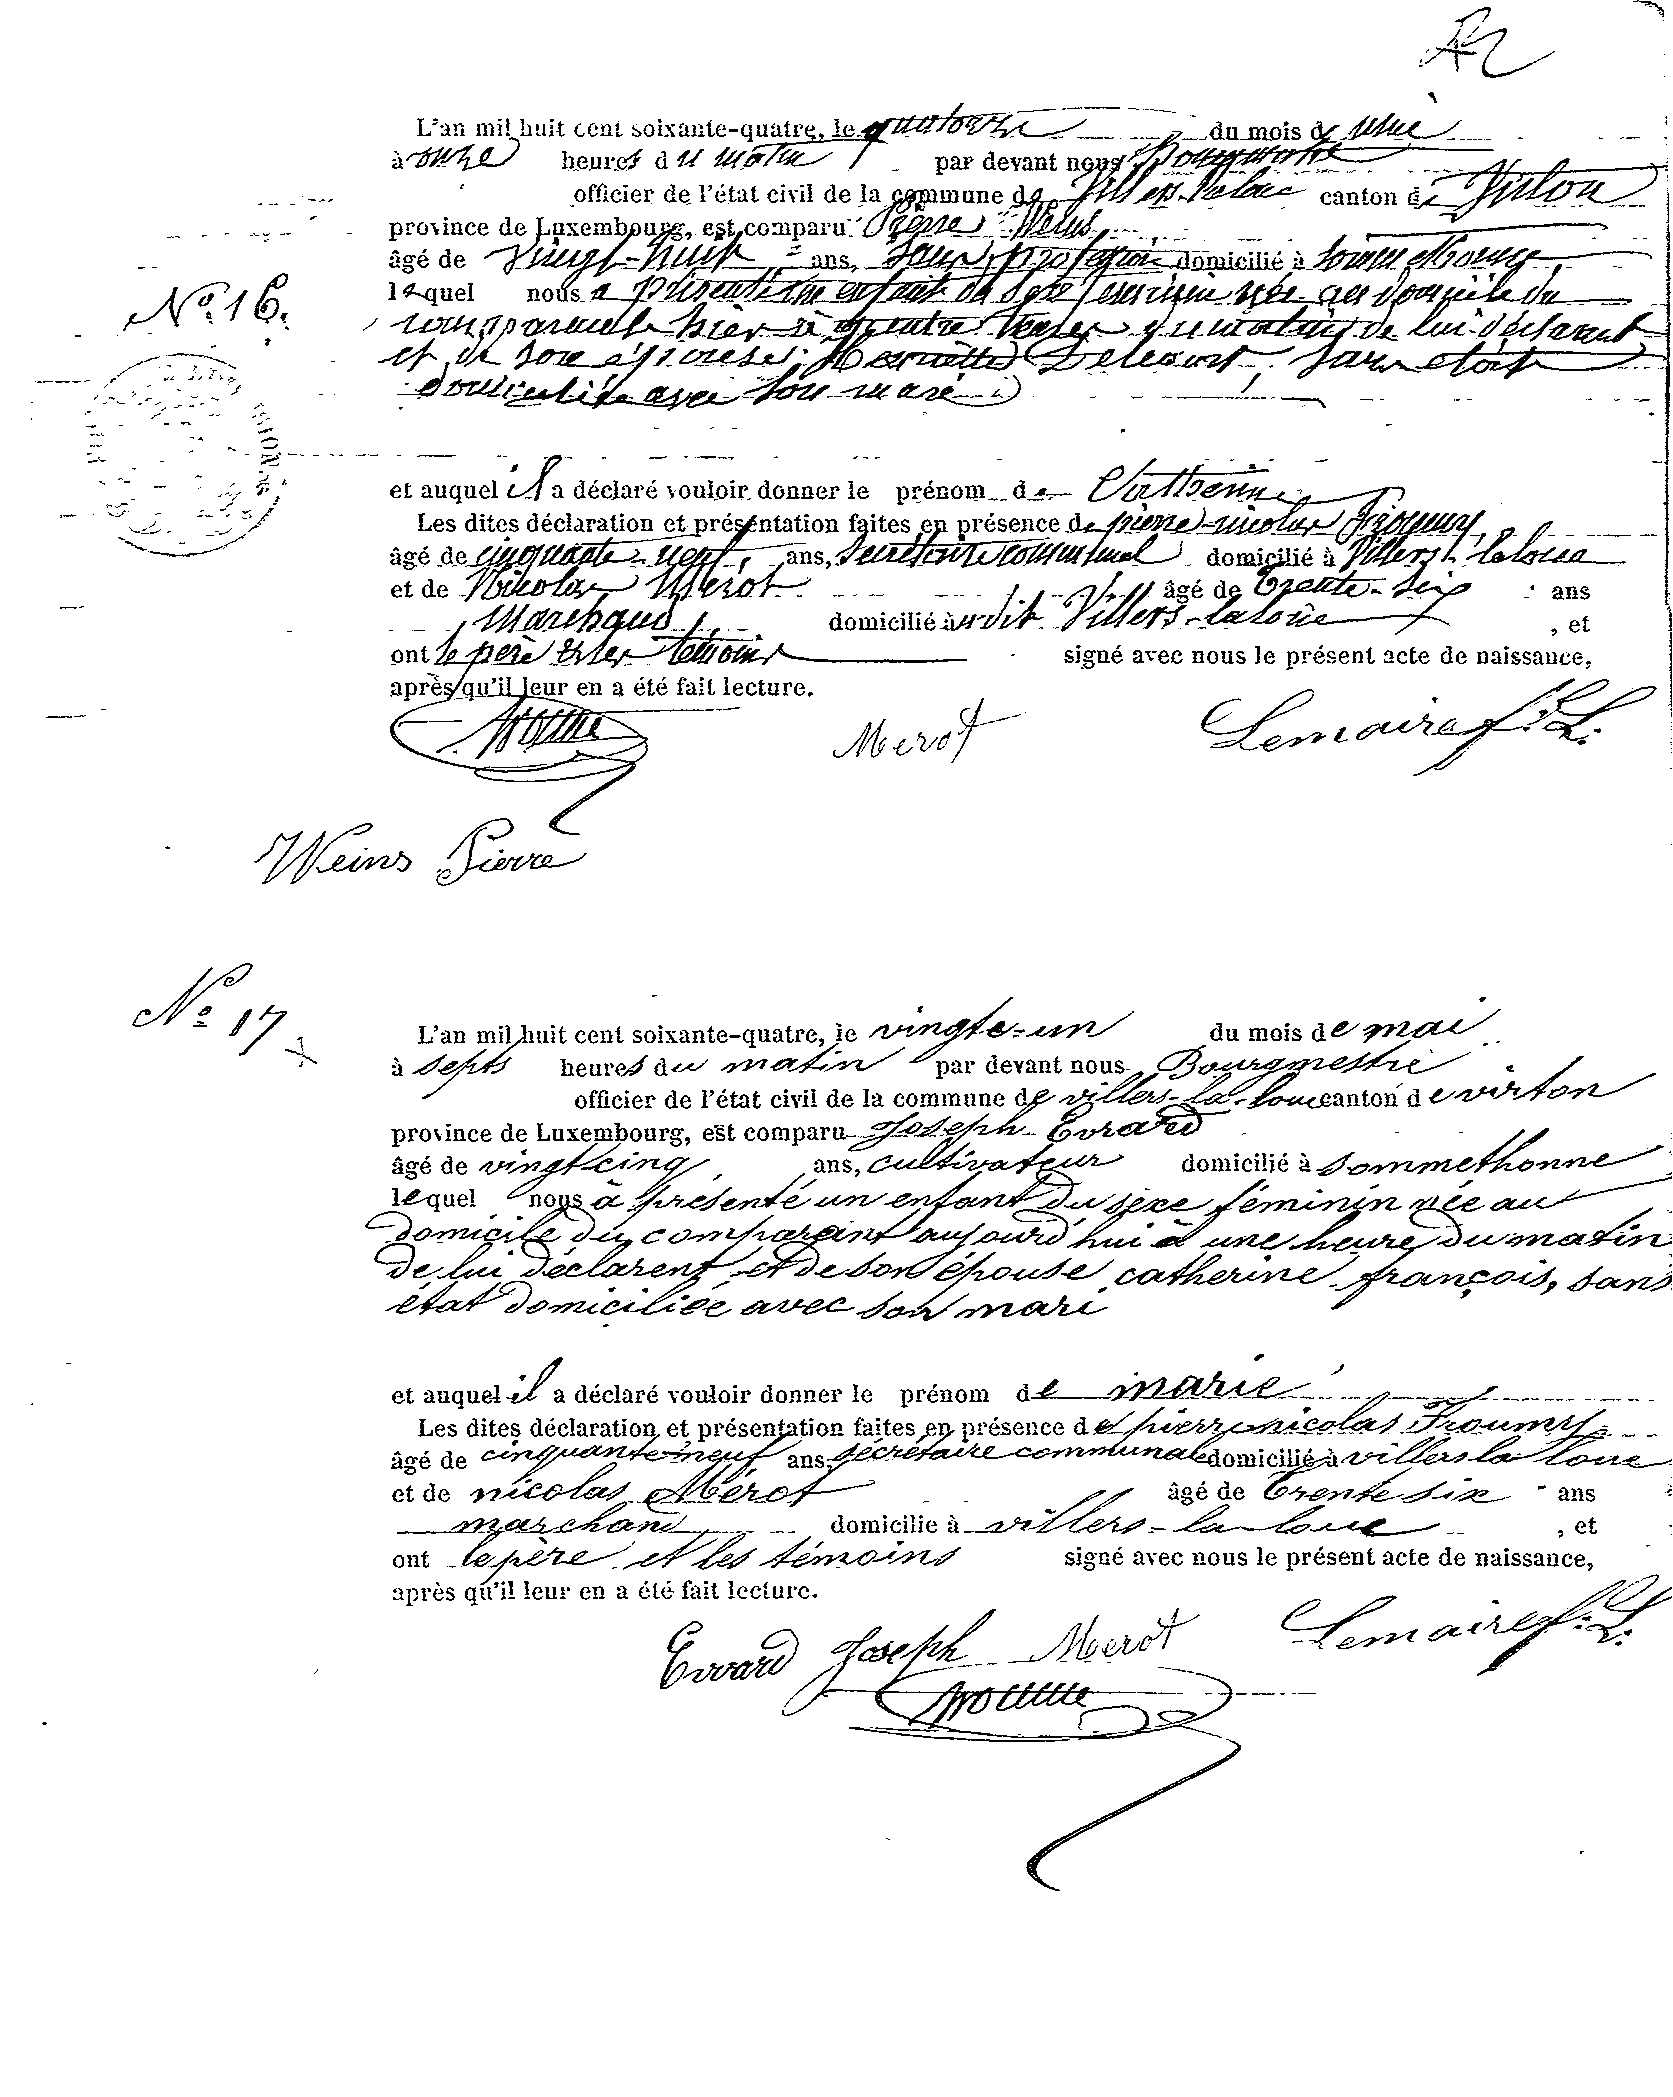 L'an mil huit cent soixante-quatre, le quatorze du mois de mai
à onze heures du matin par devant nous Bourgmestre
officier de l'état civil de la commune de Villers-laloue canton de Virton
province de Luxembourg, est comparu Pierre Weins
âgé de vingt-huit ans, sans profession domicilié à
No. 16.
lequel nous a présenté un enfant du sexe féminin née au domicile du
comparant hier à quatre heures du matin de lui déclarant
et de son épouse sans état
domiciliée avec son mari
et auquel il a déclaré vouloir donner le prénom de Catherine
Les dites déclaration et présentation faites en présence de pierre-nicolas
âgé de cinquante-neuf, ans, secrétaire communal domicilié à Villers-laloue
et de Nicolas Merot âgé de Trente-six ans
Marchand, domicilié à udit Villers-laloue , et
ont le père et les témoins signé avec nous le présent acte de naissance,
après qu'il leur en a été fait lecture.
Merot Lemaire f. L.
Weins Pierre
No 17
L'an mil huit cent soixante-quatre, le vingte-un du mois de mai
à septs heures du matin par devant nous Bourgmestre
officier de l'état civil de la commune de villers-la-loue canton de virton
province de Luxembourg, est comparu Joseph Evrard
âgé de vingt-cinq ans, cultivateur domicilié à sommethonne
lequel nous à présenté un enfant du sexe féminin née au
domicile du comparant aujourd'hui à une heure du matin
de lui déclarent et de son épouse catherine françois, sans
état domiciliée avec son mari
et auquel il a déclaré vouloir donner le prénom de marie
Les dites déclaration et présentation faites en présence de pierre nicolas
âgé de cinquante-neuf ans, sécrétaire communale domicilié à villers la loue
et de nicolas Mérot âgé de Trente six ans
marchand domicilié à villers-la-loue , et
ont le père et les témoins signé avec nous le présent acte de naissance,
après qu'il leur en a été fait lecture.
Evrard Joseph Merot Lemaire f. L.